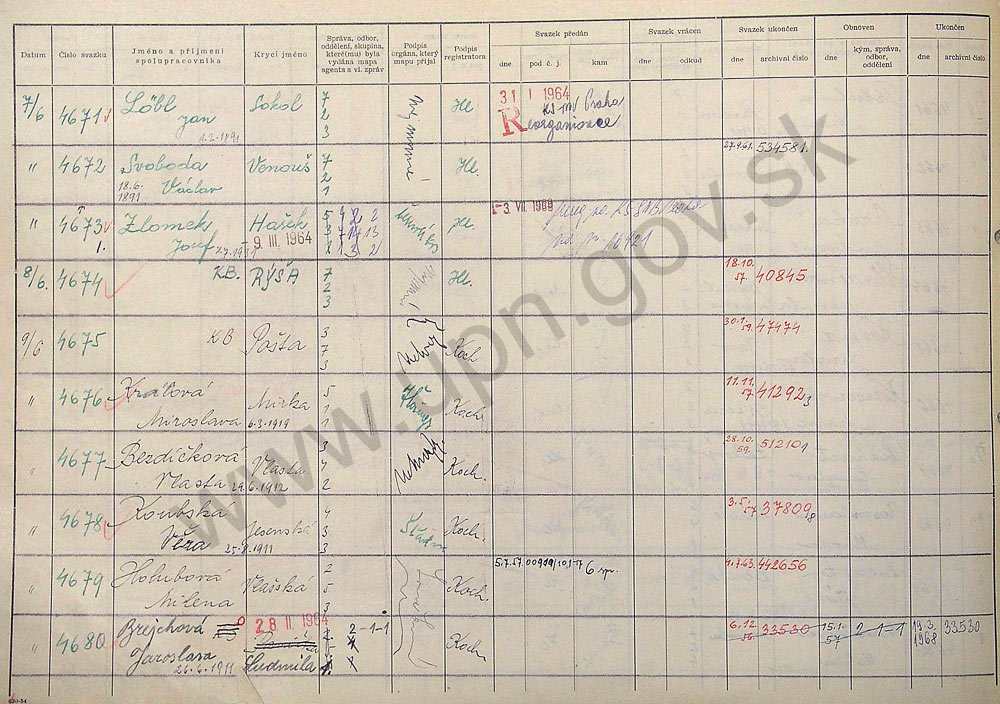 Datum
Číslo svazku
Jméno a příjmení spolupracovníka
Krycí jméno
Správa, odbor, oddělení, skupina, které(mu) byla vydána mapa agenta a vl. zpráv
Podpis orgána, který mapu přijal
Podpis registratora
Svazek předán
dne
pod č. j.
kam
Svazek vrácen
dne
odkud
Svazek ukončen
dne
archivní číslo
Obnoven
dne
kým, správa, odbor, oddělení
Ukončen
dne
archivní číslo
7/6 4671 Löbl Sokol 7 2 3 Hl. 31 I 1964 KS MV Praha
Jan Reorganisace
1.2.1891
" 4672 Svoboda Venouš 7 2 1 Hl. 27.9.61. 534581.
18.6. 1891 Václav
" 4673 Zlomek Hašek 5 3 1 Hl. -3. VII. 1969
1. Josef 9 III. 1964
8/6. 4674 KB. RÝŠA 7 2 3 Hl. 18.10. 57. 40845
9/6 4675 KB Pošta 3 7 3 Koch 30.1. 59. 47474
" 4676 Kraľová Mirka 5 1 1 Koch. 11.11. 57. 41292 3
Miroslava 6.3.1919
" 4677 Bezdíčková Vlasta 3 4 2 Koch. 28.10. 59. 51210 1
Vlasta 29.6.1912
" 4678 Koubská Jesenská 4 3 3 Koch. 3.5. 57 37809 18
Věra 25.8.1911
" 4679 Holubová Vlašská 2 5 3 Koch. 5.7.57. 6 spr. 1.7.63. 442656
Milena
" 4680 Brejchová 28 II. 1964 2-1-1 Koch. 6.12. 56 33530 15.1. 57 2-1-1 19.3. 1968 33530
Jaroslava Ludmila
26.4.1911
www.upn.gov.sk